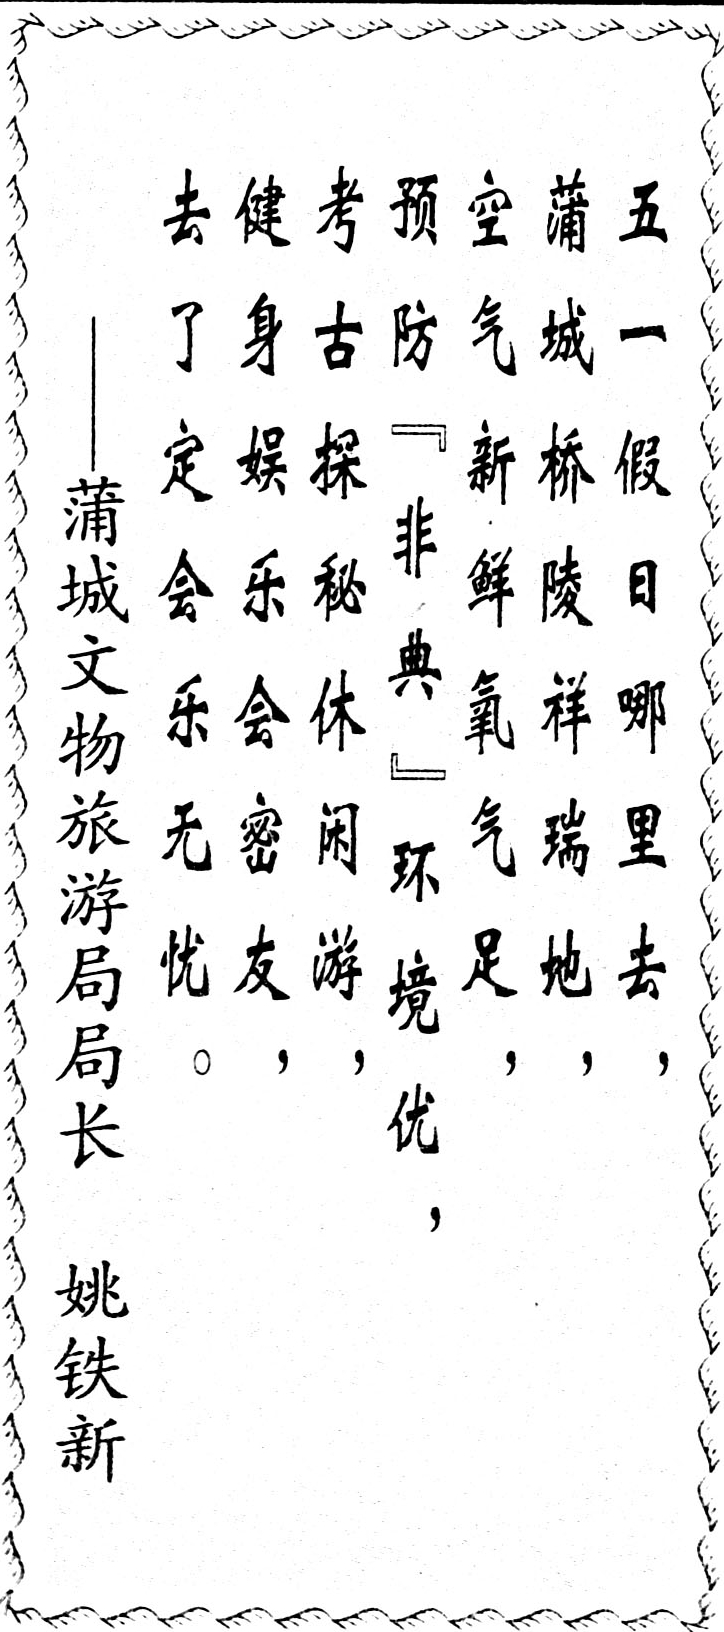 五一假日哪里去，
蒲城桥陵祥瑞地，
空气新鲜氧气足，
预防『非典』环境优，
考古探秘休闲游，
健身娱乐会密友，
去了定会乐无忧。
——蒲城文物旅游局局长 姚铁新